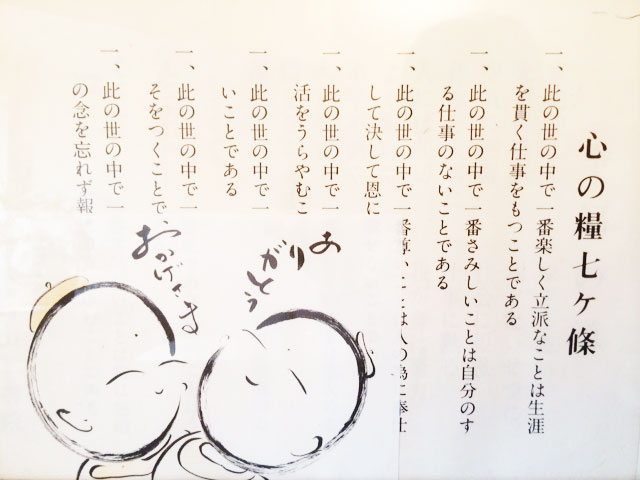 心の糧七ヶ條
一、此の世の中で一番楽しく立派なことは生涯
を貫く仕事をもつことである
一、此の世の中で一番さみしいことは自分のす
る仕事のないことである
一、此の世の中で一番尊いことは人の為に奉仕
して決して恩に
一、此の世の中で一
活をうらやむこ
一、此の世の中で一
いことである
一、此の世の中で一
そをつくことで、
一、此の世の中で一
の念を忘れず報
ありがとう
おかげさま